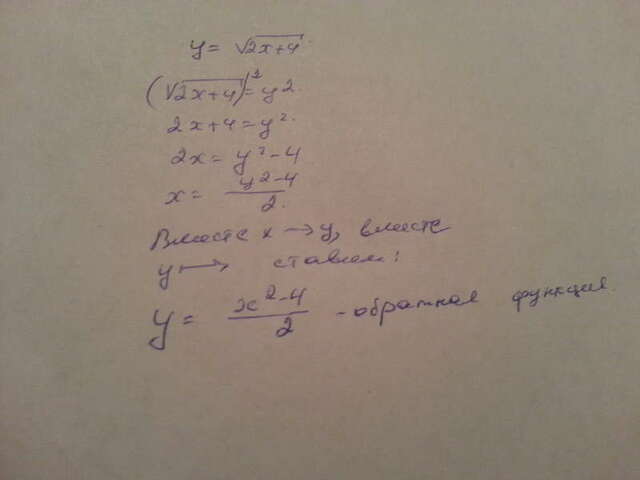 y = √2x+4
(√2x+4)² = y²
2x+4 = y²
2x = y²-4
x = y²-4/2
Вместе x → y, вместе
y → ставим:
y = x²-4/2 - обратная функция